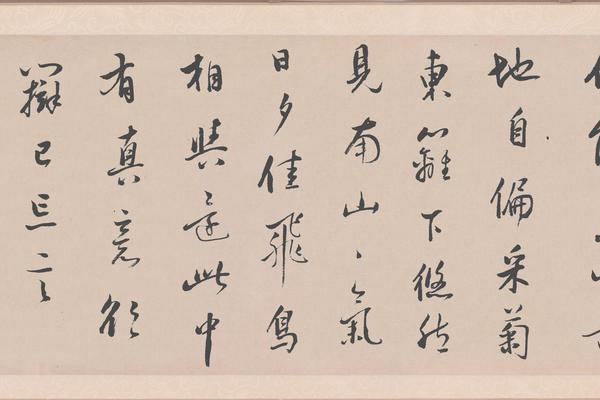 地自偏采菊
東籬下悠然
見南山、氣
日夕佳飛鳥
相與還此中
有真意欲
辨已忘言